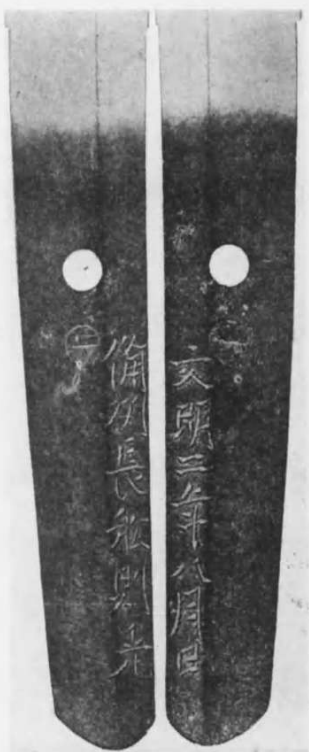 備州長船則光
文明三年八月日